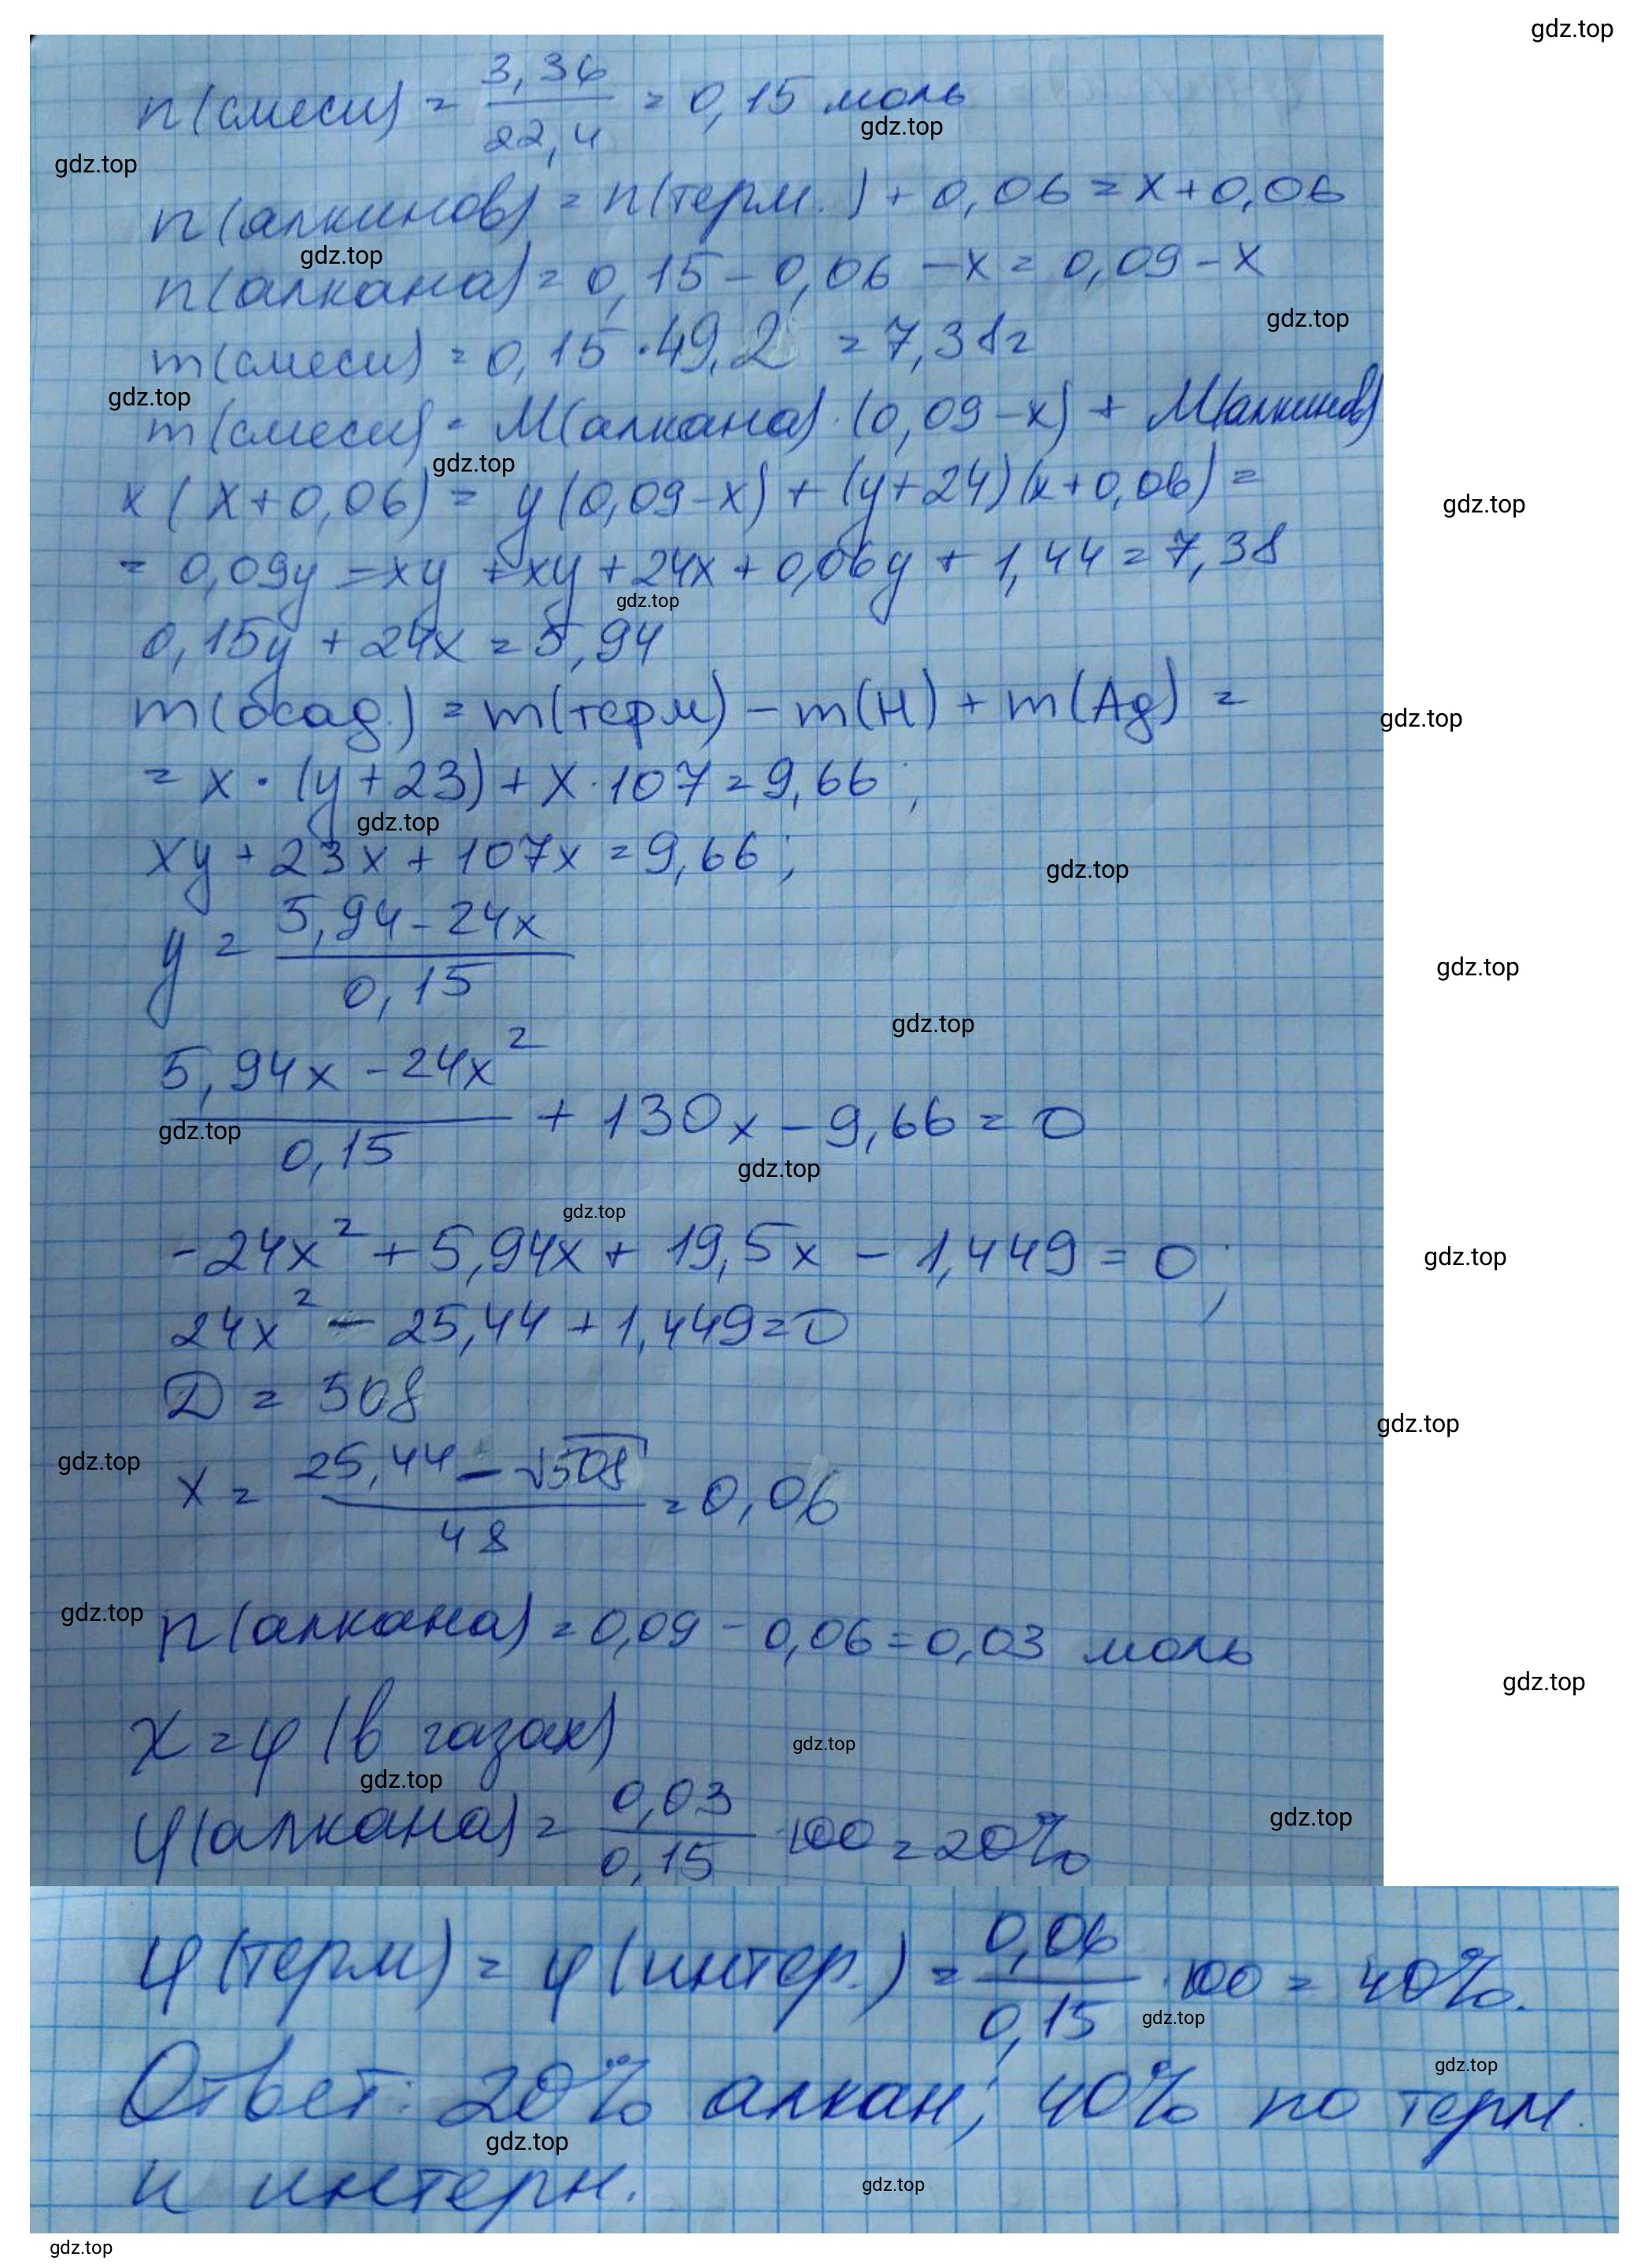 gdz.top
n(смеси) = 3,36 / 22,4 = 0,15 моль
gdz.top
gdz.top
n(алкинов) = n(терм.) + 0,06 = x + 0,06
gdz.top
n(алкана) = 0,15 - 0,06 - x = 0,09 - x
gdz.top
m(смеси) = 0,15 · 49,2 = 7,38г
gdz.top
m(смеси) = M(алкана) · (0,09 - x) + M(алкинов)
gdz.top
x (x + 0,06) = y(0,09 - x) + (y + 24)(x + 0,06) =
gdz.top
= 0,09y - xy + xy + 24x + 0,06y + 1,44 = 7,38
gdz.top
0,15y + 24x = 5,94
m(осад.) = m(терм) - m(H) + m(Ag) =
gdz.top
= x · (y + 23) + x · 107 = 9,66;
gdz.top
xy + 23x + 107x = 9,66;
gdz.top
y = 5,94 - 24x / 0,15
gdz.top
gdz.top
5,94x - 24x² / 0,15 + 130x - 9,66 = 0
gdz.top
gdz.top
gdz.top
-24x² + 5,94x + 19,5x - 1,449 = 0;
gdz.top
24x² - 25,44 + 1,449 = 0
D = 508
gdz.top
gdz.top
x = 25,44 - √508 / 48 = 0,06
gdz.top
n(алкана) = 0,09 - 0,06 = 0,03 моль
gdz.top
χ = φ (в газах)
gdz.top
gdz.top
φ(алкана) = 0,03 / 0,15 · 100 = 20%
gdz.top
φ(терм) = φ(интер.) = 0,06 / 0,15 · 100 = 40%.
gdz.top
gdz.top
Ответ: 20% алкан; 40% по терм.
gdz.top
и интерн.
gdz.top
gdz.top